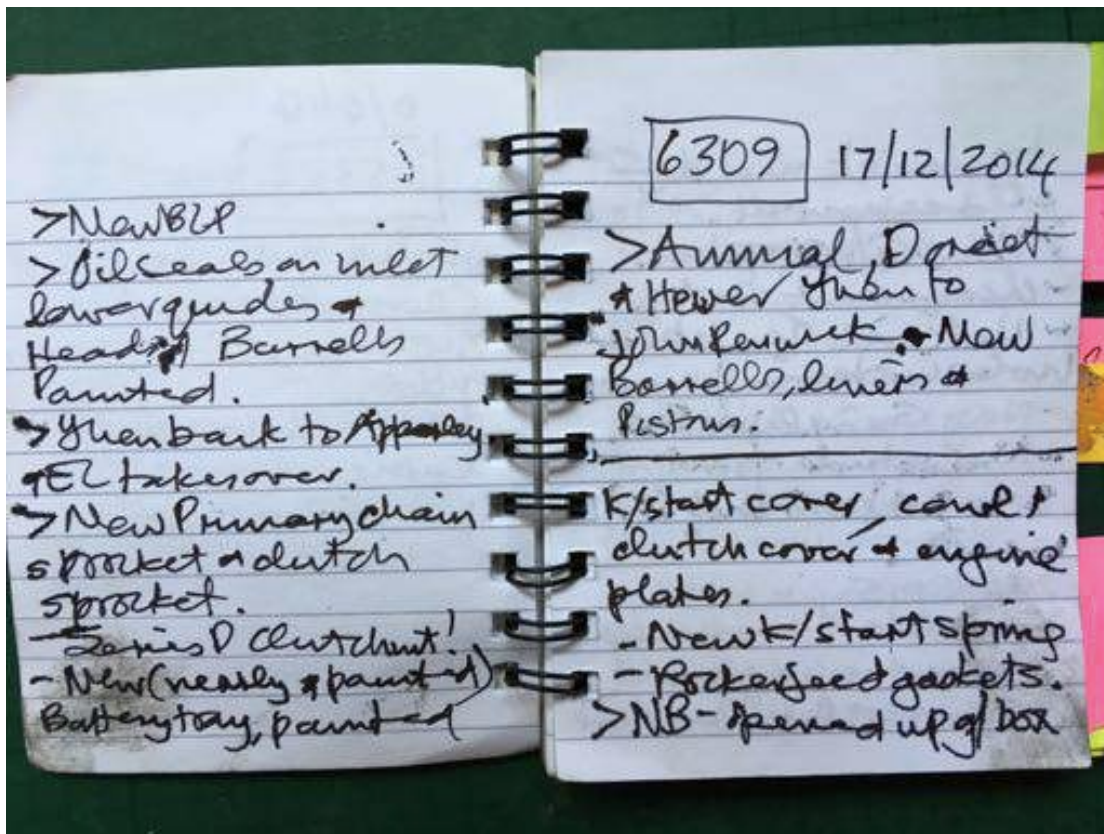 >New BLP
>Oil seals on inlet
lower guides &
Heads, Barrells
Painted.
>Then back to Apperley
& EL takes over.
>New Primary chain
sprocket & clutch
sprocket.
- Series D Clutch nut!
- New (nearly & painted)
Battery tray, painted
6309 17/12/2014
>Annual, Dorset
& Hewer then to
John Renwick. New
Barrells, liners &
Pistons.
K/start cover, cowl,
clutch cover & engine
plates.
- New k/start spring
- Rocker feed gaskets.
>NB - opened up g/box